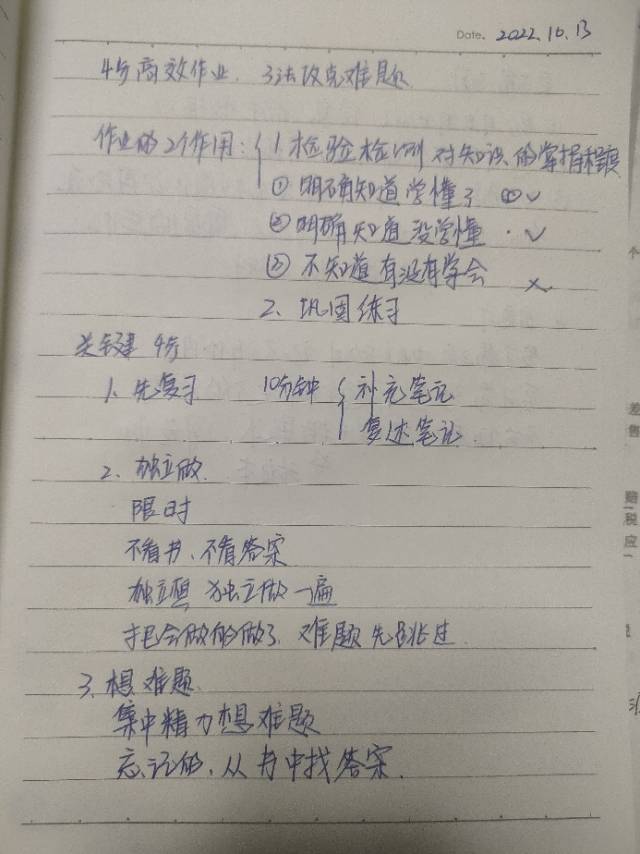 Date. 2022.10.13
4步高效作业. 3法攻克难题
作业的2个作用: 1. 检验检测 对知识的掌握程度
① 明确知道学懂了 ✓
② 明确知道没学懂 ✓
③ 不知道有没有学会 ×
2. 巩固练习
关键4步
1. 先复习 10分钟 补充笔记
复述笔记
2. 独立做.
限时
不看书. 不看答案
独立想 独立做一遍
把会做的做了. 难题先跳过.
3. 想难题.
集中精力想难题
忘记的, 从书中找答案.
个
差
售
赔
税
应